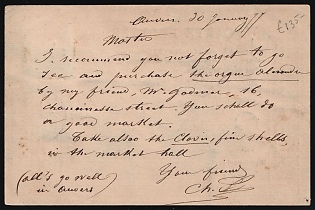 Anvers 30 January 77
£135-
Master
I recommend you not forget to go
see and purchase the orgue
by my friend, Mr Godmer, 16,
street. You schall do
a good market.
Take also the Clovis, fine shells,
in the market hall
Your friend
(all's go well
in Anvers)
Ch.